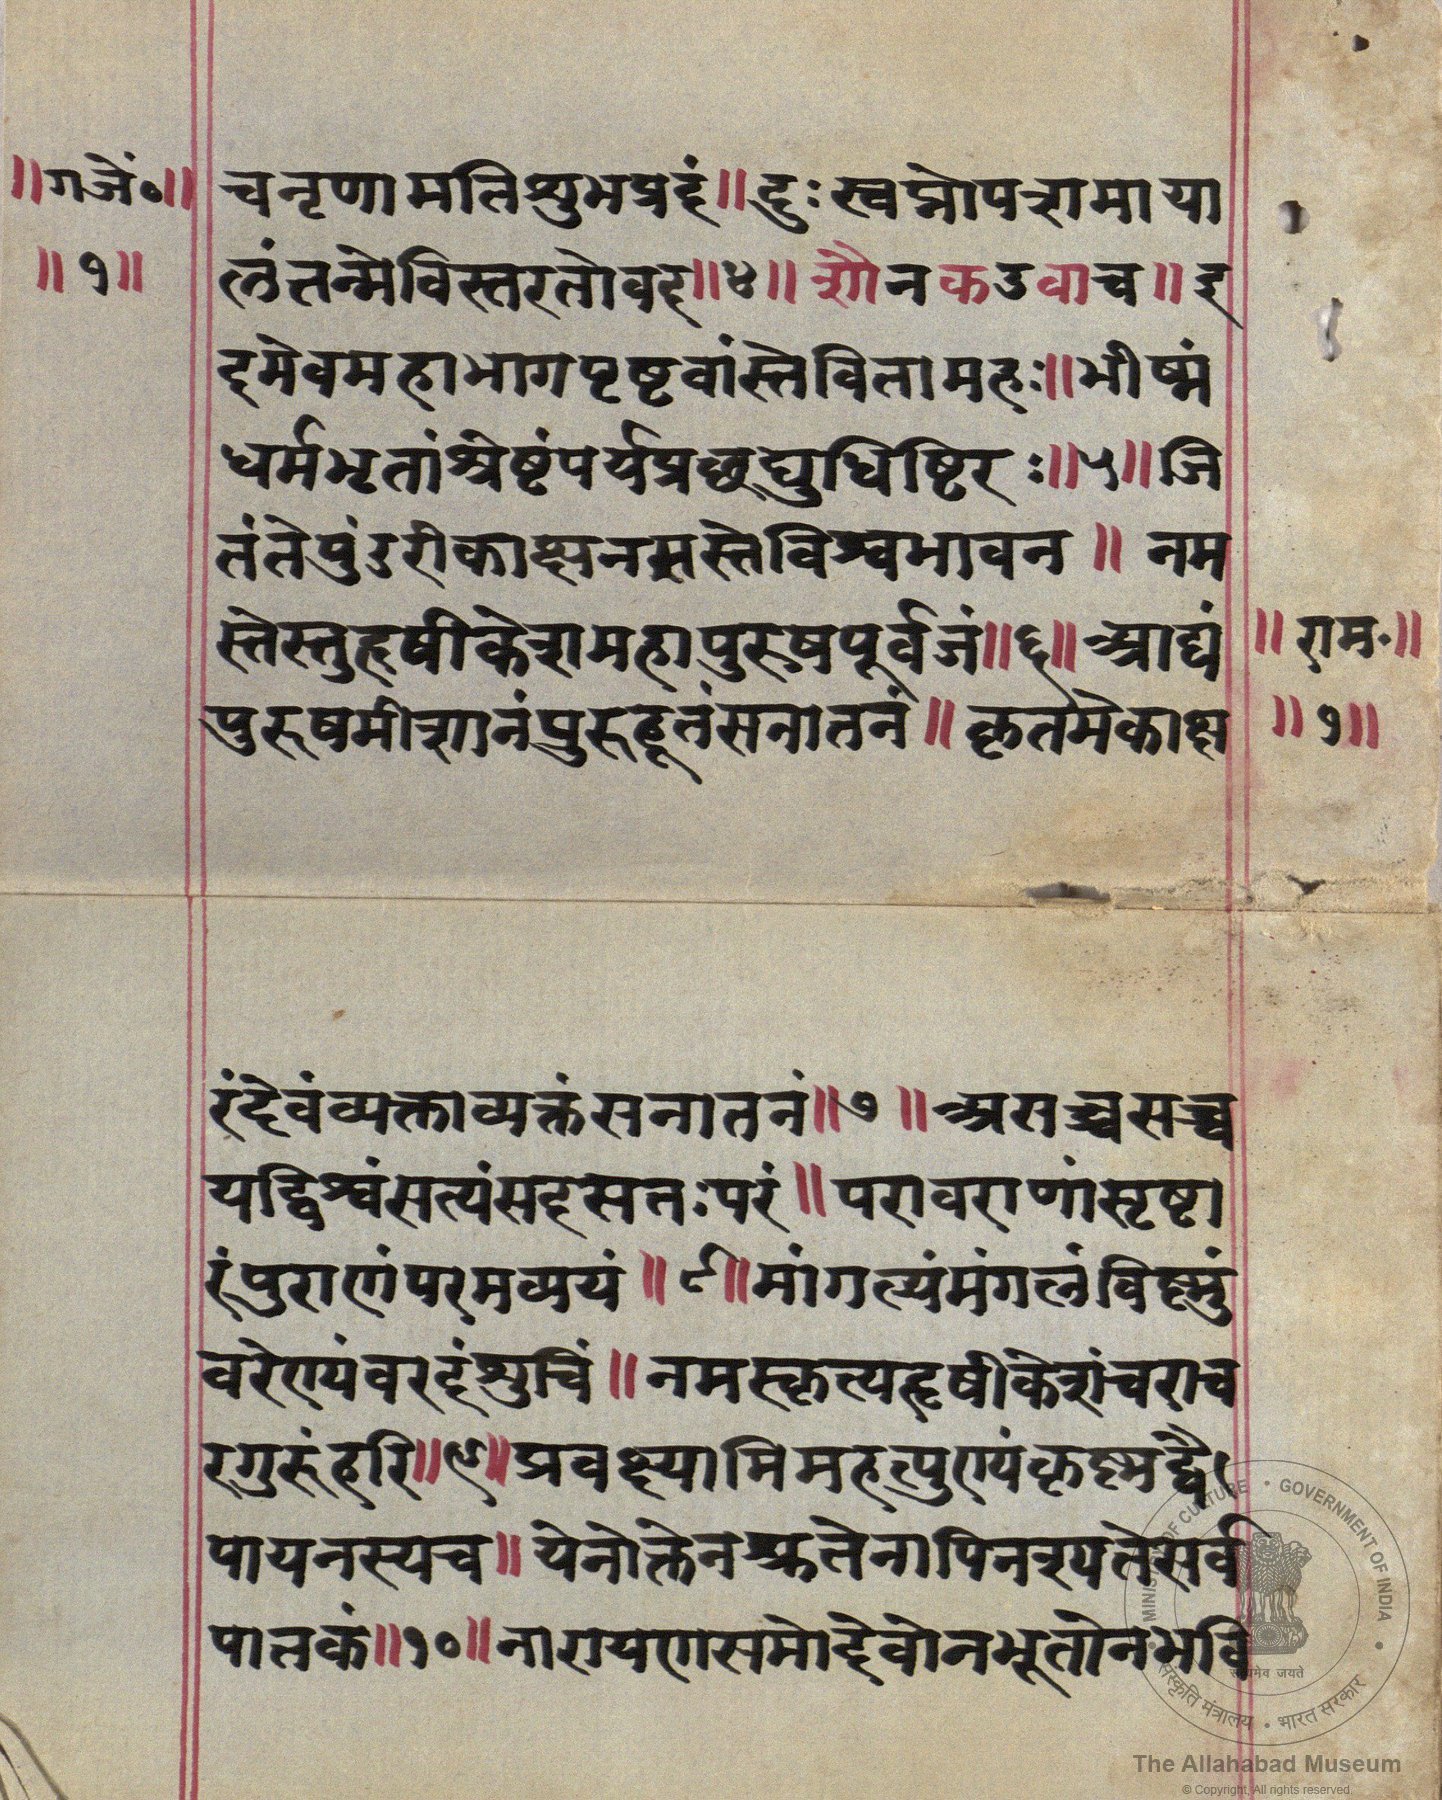 ॥गजें०॥ चनृणामतिशुभप्रदं॥दुःस्वप्नोपशमाया
॥१॥ लंतन्मेविस्तरतोवद॥४॥शौनकउवाच॥इ
दमेवमहाभागपृष्टवांस्तेवितामहः॥भीष्मं
धर्मभृतांश्रेष्टंपर्यप्रछद्युधिष्टिरः॥५॥जि
तंतेपुंडरीकाक्षनमस्तेविश्वभावन॥नम
स्तेस्तुहृषीकेशमहापुरुषपूर्वजं॥६॥आद्यं ॥राम॰॥
पुरुषमीशानंपुरुहूतंसनातनं॥कृतमेकाक्ष ॥१॥
रंदेवंव्यक्ताव्यक्तंसनातनं॥७॥असच्चसच्च
यद्विश्वंसत्यंसदसतःपरं॥परावराणांस्तृष्टा
रंपुराणंपरमव्ययं॥८॥मांगल्यंमंगलंविष्णुं
वरेण्यंवरदंशुचिं॥नमस्कृत्यहृषीकेशंचराच
रगुरुंहरि॥९॥प्रवक्ष्यामिमहत्पुण्यंकृष्णद्वै
पायनस्यच॥येनोक्तेनश्रुतेनापिनश्यतेसर्व
पातकं॥१०॥नारायणसमोदेवोनभूतोनभवि
MINISTRY OF CULTURE • GOVERNMENT OF INDIA
सत्यमेव जयते
संस्कृति मंत्रालय • भारत सरकार
The Allahabad Museum
© Copyright, All rights reserved.